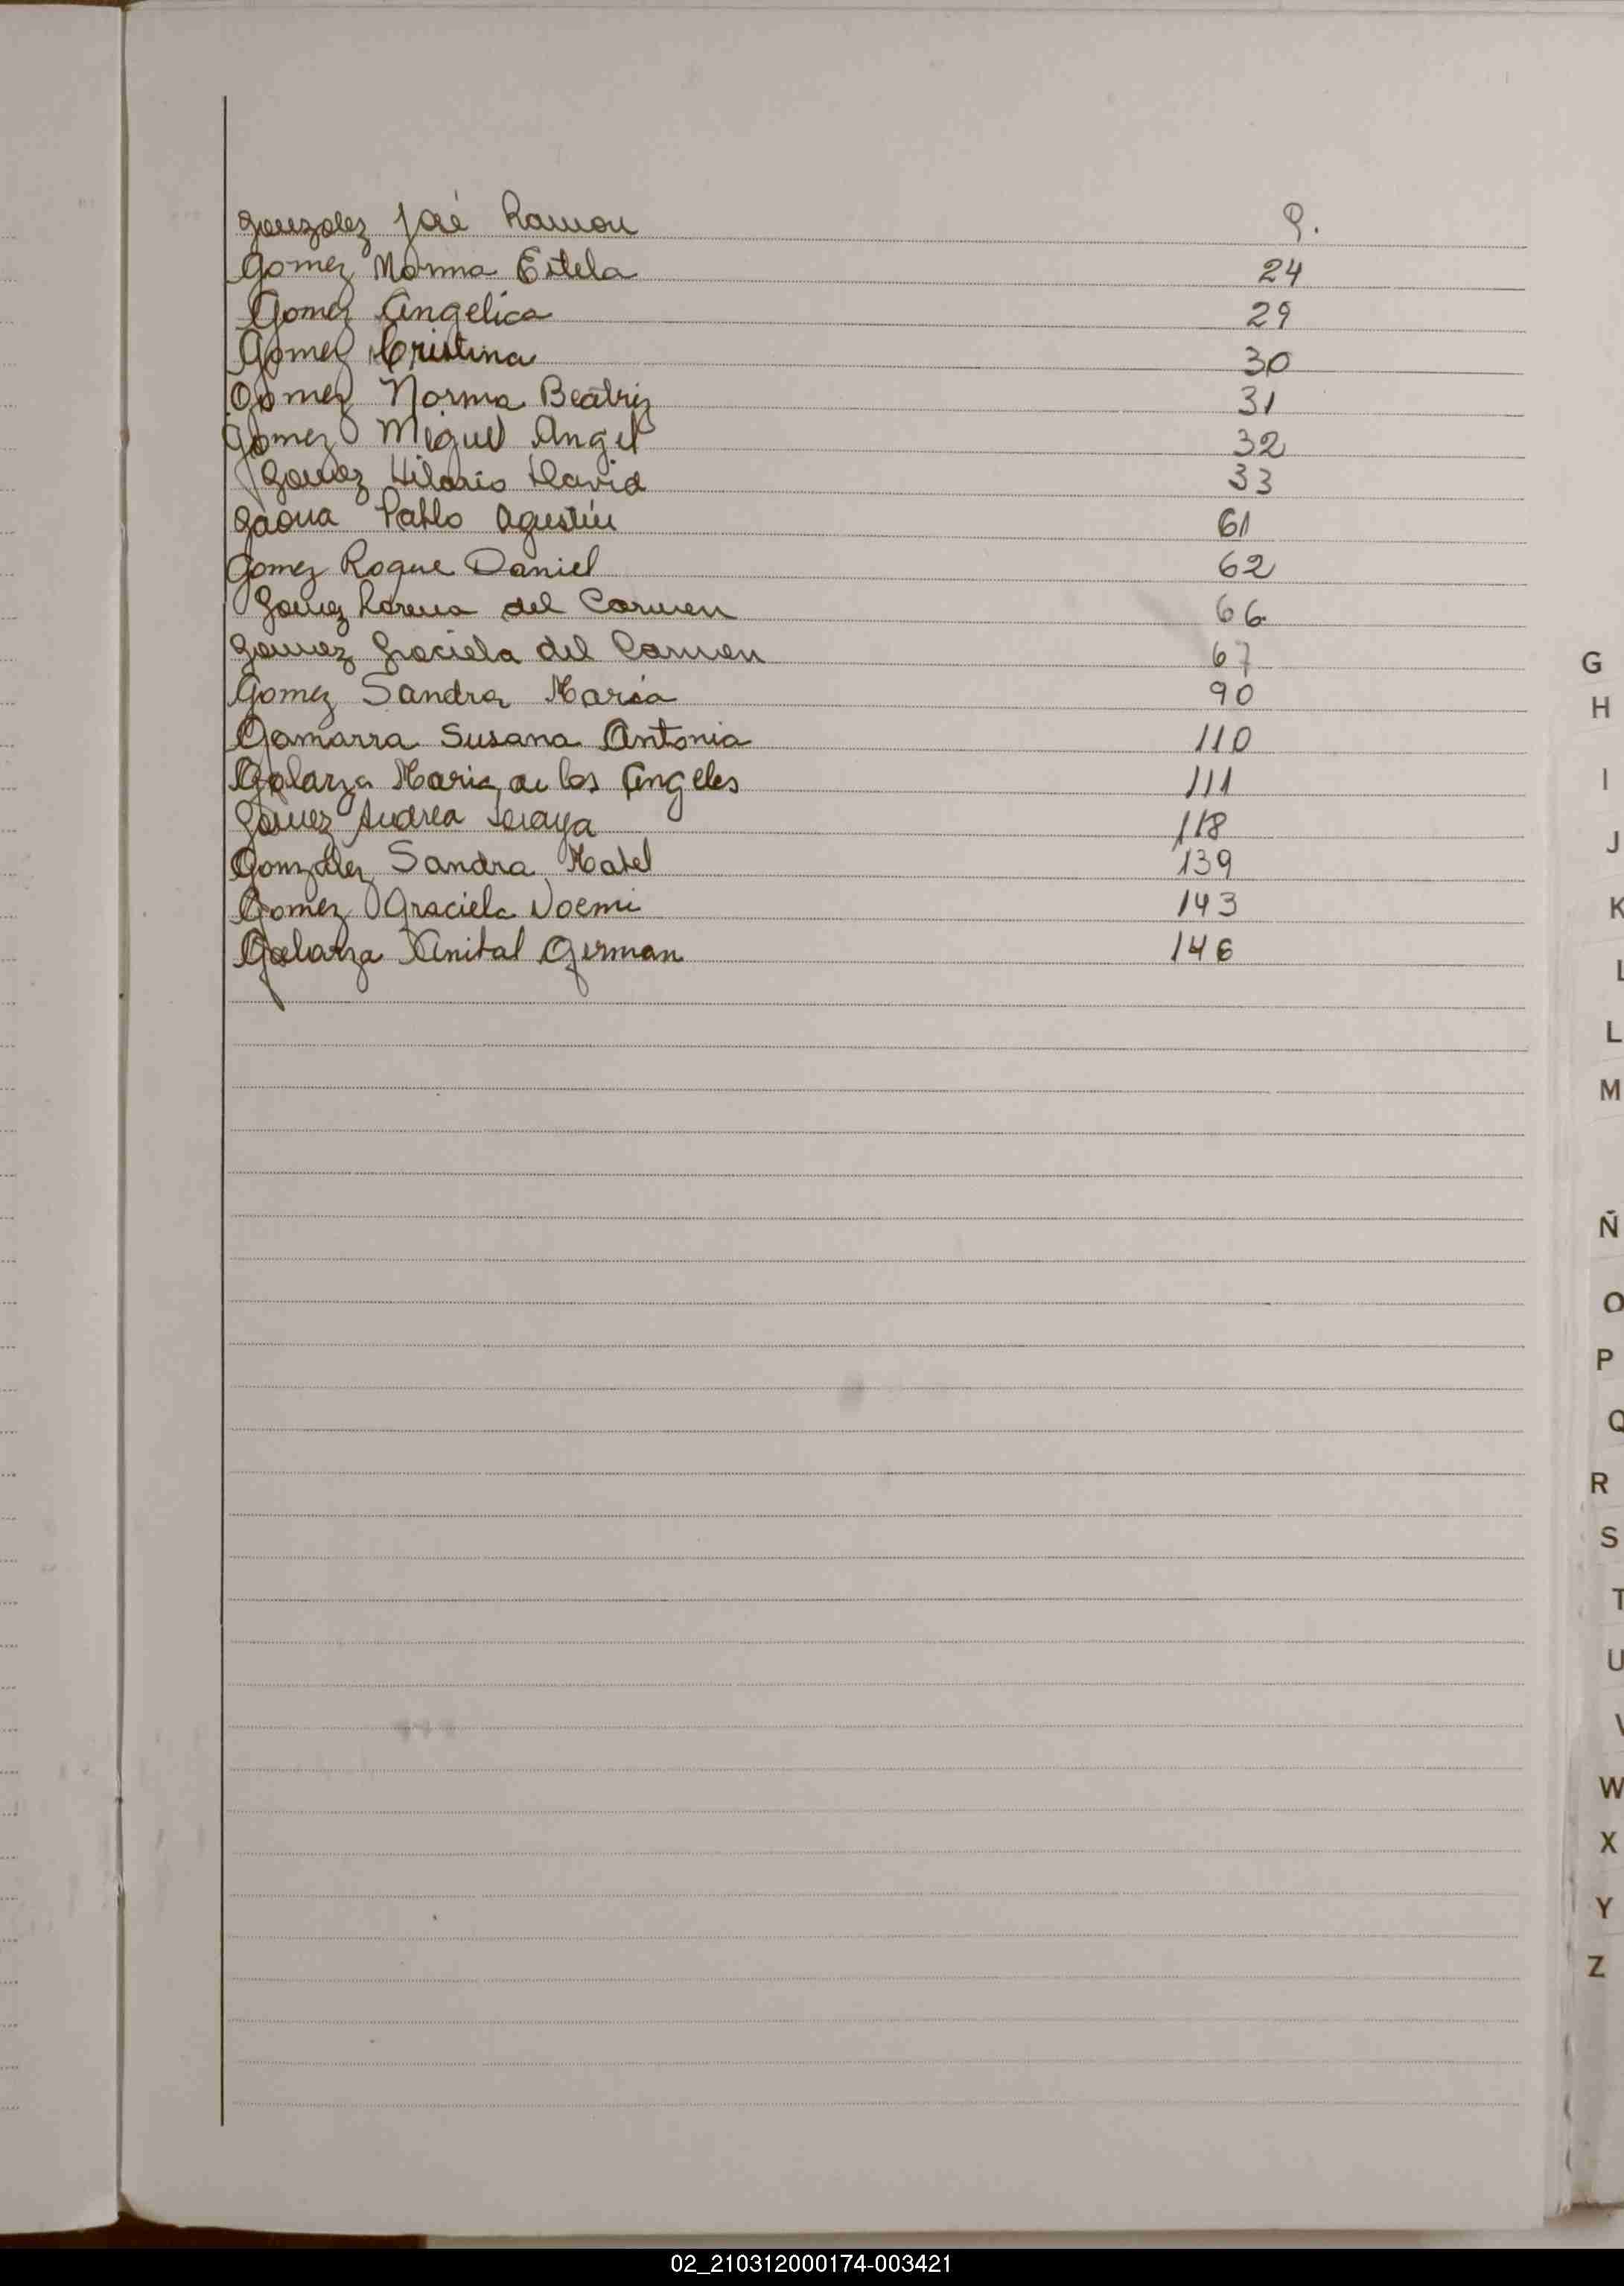 Gonzalez José Ramon 9.
Gomez Norma Estela 24
Gomez Angelica 29
Gomez Cristina 30
Gomez Norma Beatriz 31
Gomez Miguel Angel 32
Gomez Hilario David 33
Gaona Pablo Agustín 61
Gomez Roque Daniel 62
Gomez Lorena del Carmen 66
Gomez Graciela del Carmen 67
Gomez Sandra María 90
Gamarra Susana Antonia 110
Galarza Maria de los Angeles 111
Gomez Andrea Soraya 118
Gonzalez Sandra Mabel 139
Gomez Graciela Noemi 143
Galarza Anibal German 146
G
H
I
J
K
L
L
M
Ñ
O
P
Q
R
S
T
U
V
W
X
Y
Z
02_210312000174-003421